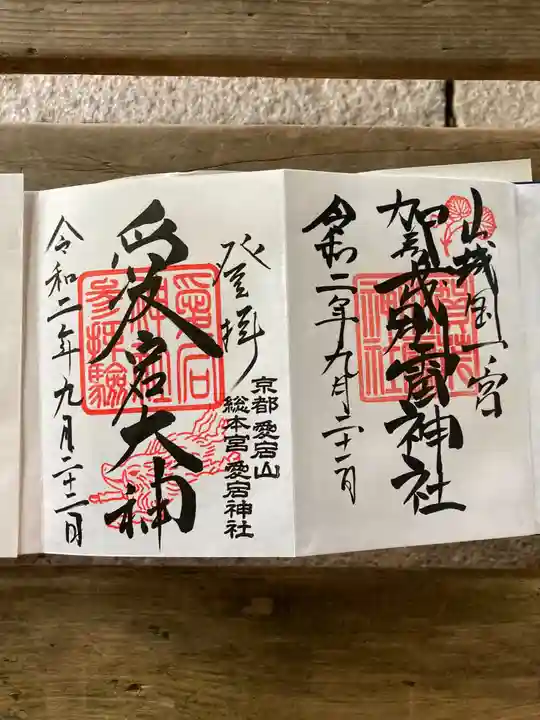 山城国一宮
賀茂別雷神社
令和二年九月二十一日
登拝
京都 愛宕山
総本宮 愛宕神社
愛宕大神
令和二年九月二十二日
愛宕
神社
参拝驗